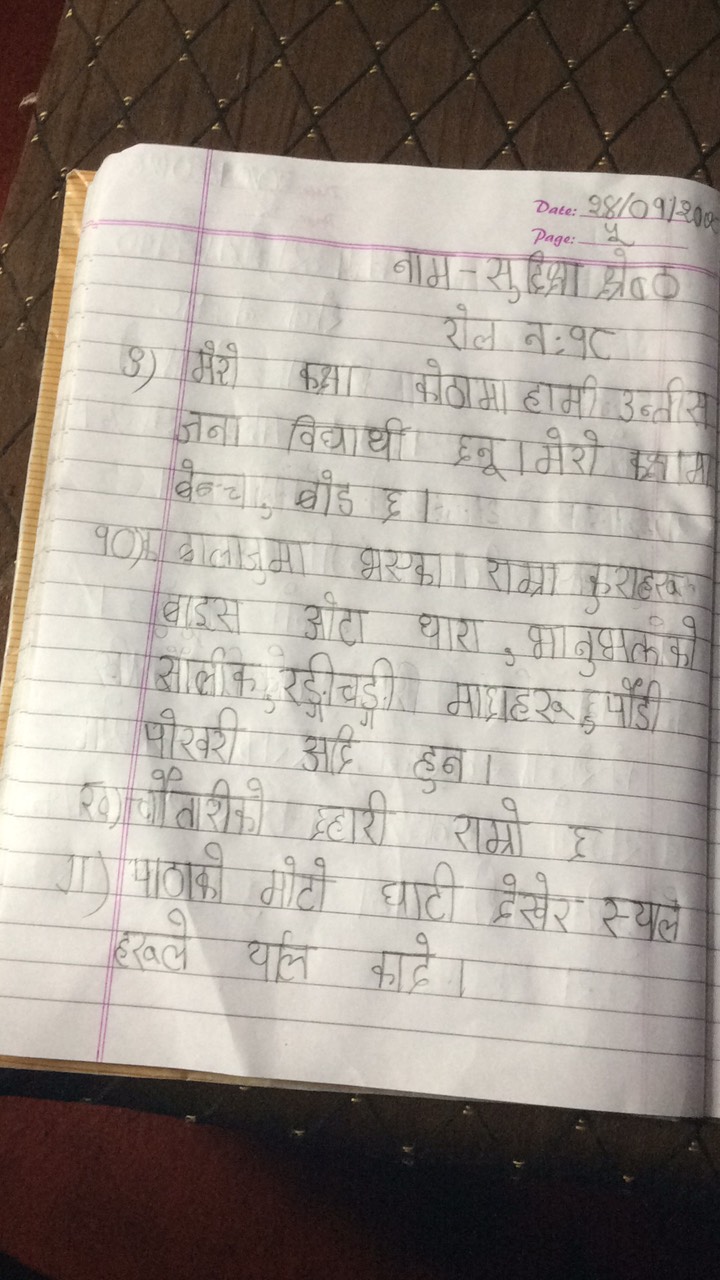 Date: २८/०१/२०
Page: ५
नाम - सुदिक्षा श्रेष्ठ
रोल न: १८
९) मेरो कक्षा कोठामा हामी उन्तीस
जना विद्यार्थी छनू । मेरो कक्षामा
बेन्च, बोड छ ।
१०) बालाजुमा भएका राम्रा कुराहरू
बाइस ओटा धारा, भानुभक्तको
सालीक, रङ्गीचङ्गी माछाहरू, पौडी
पोखरी आदि हुन ।
ख) चौतारीको छहारी राम्रो छ
ग) पाठाको मोटो घाटी देखेर स्याल
हरूले काढे ।